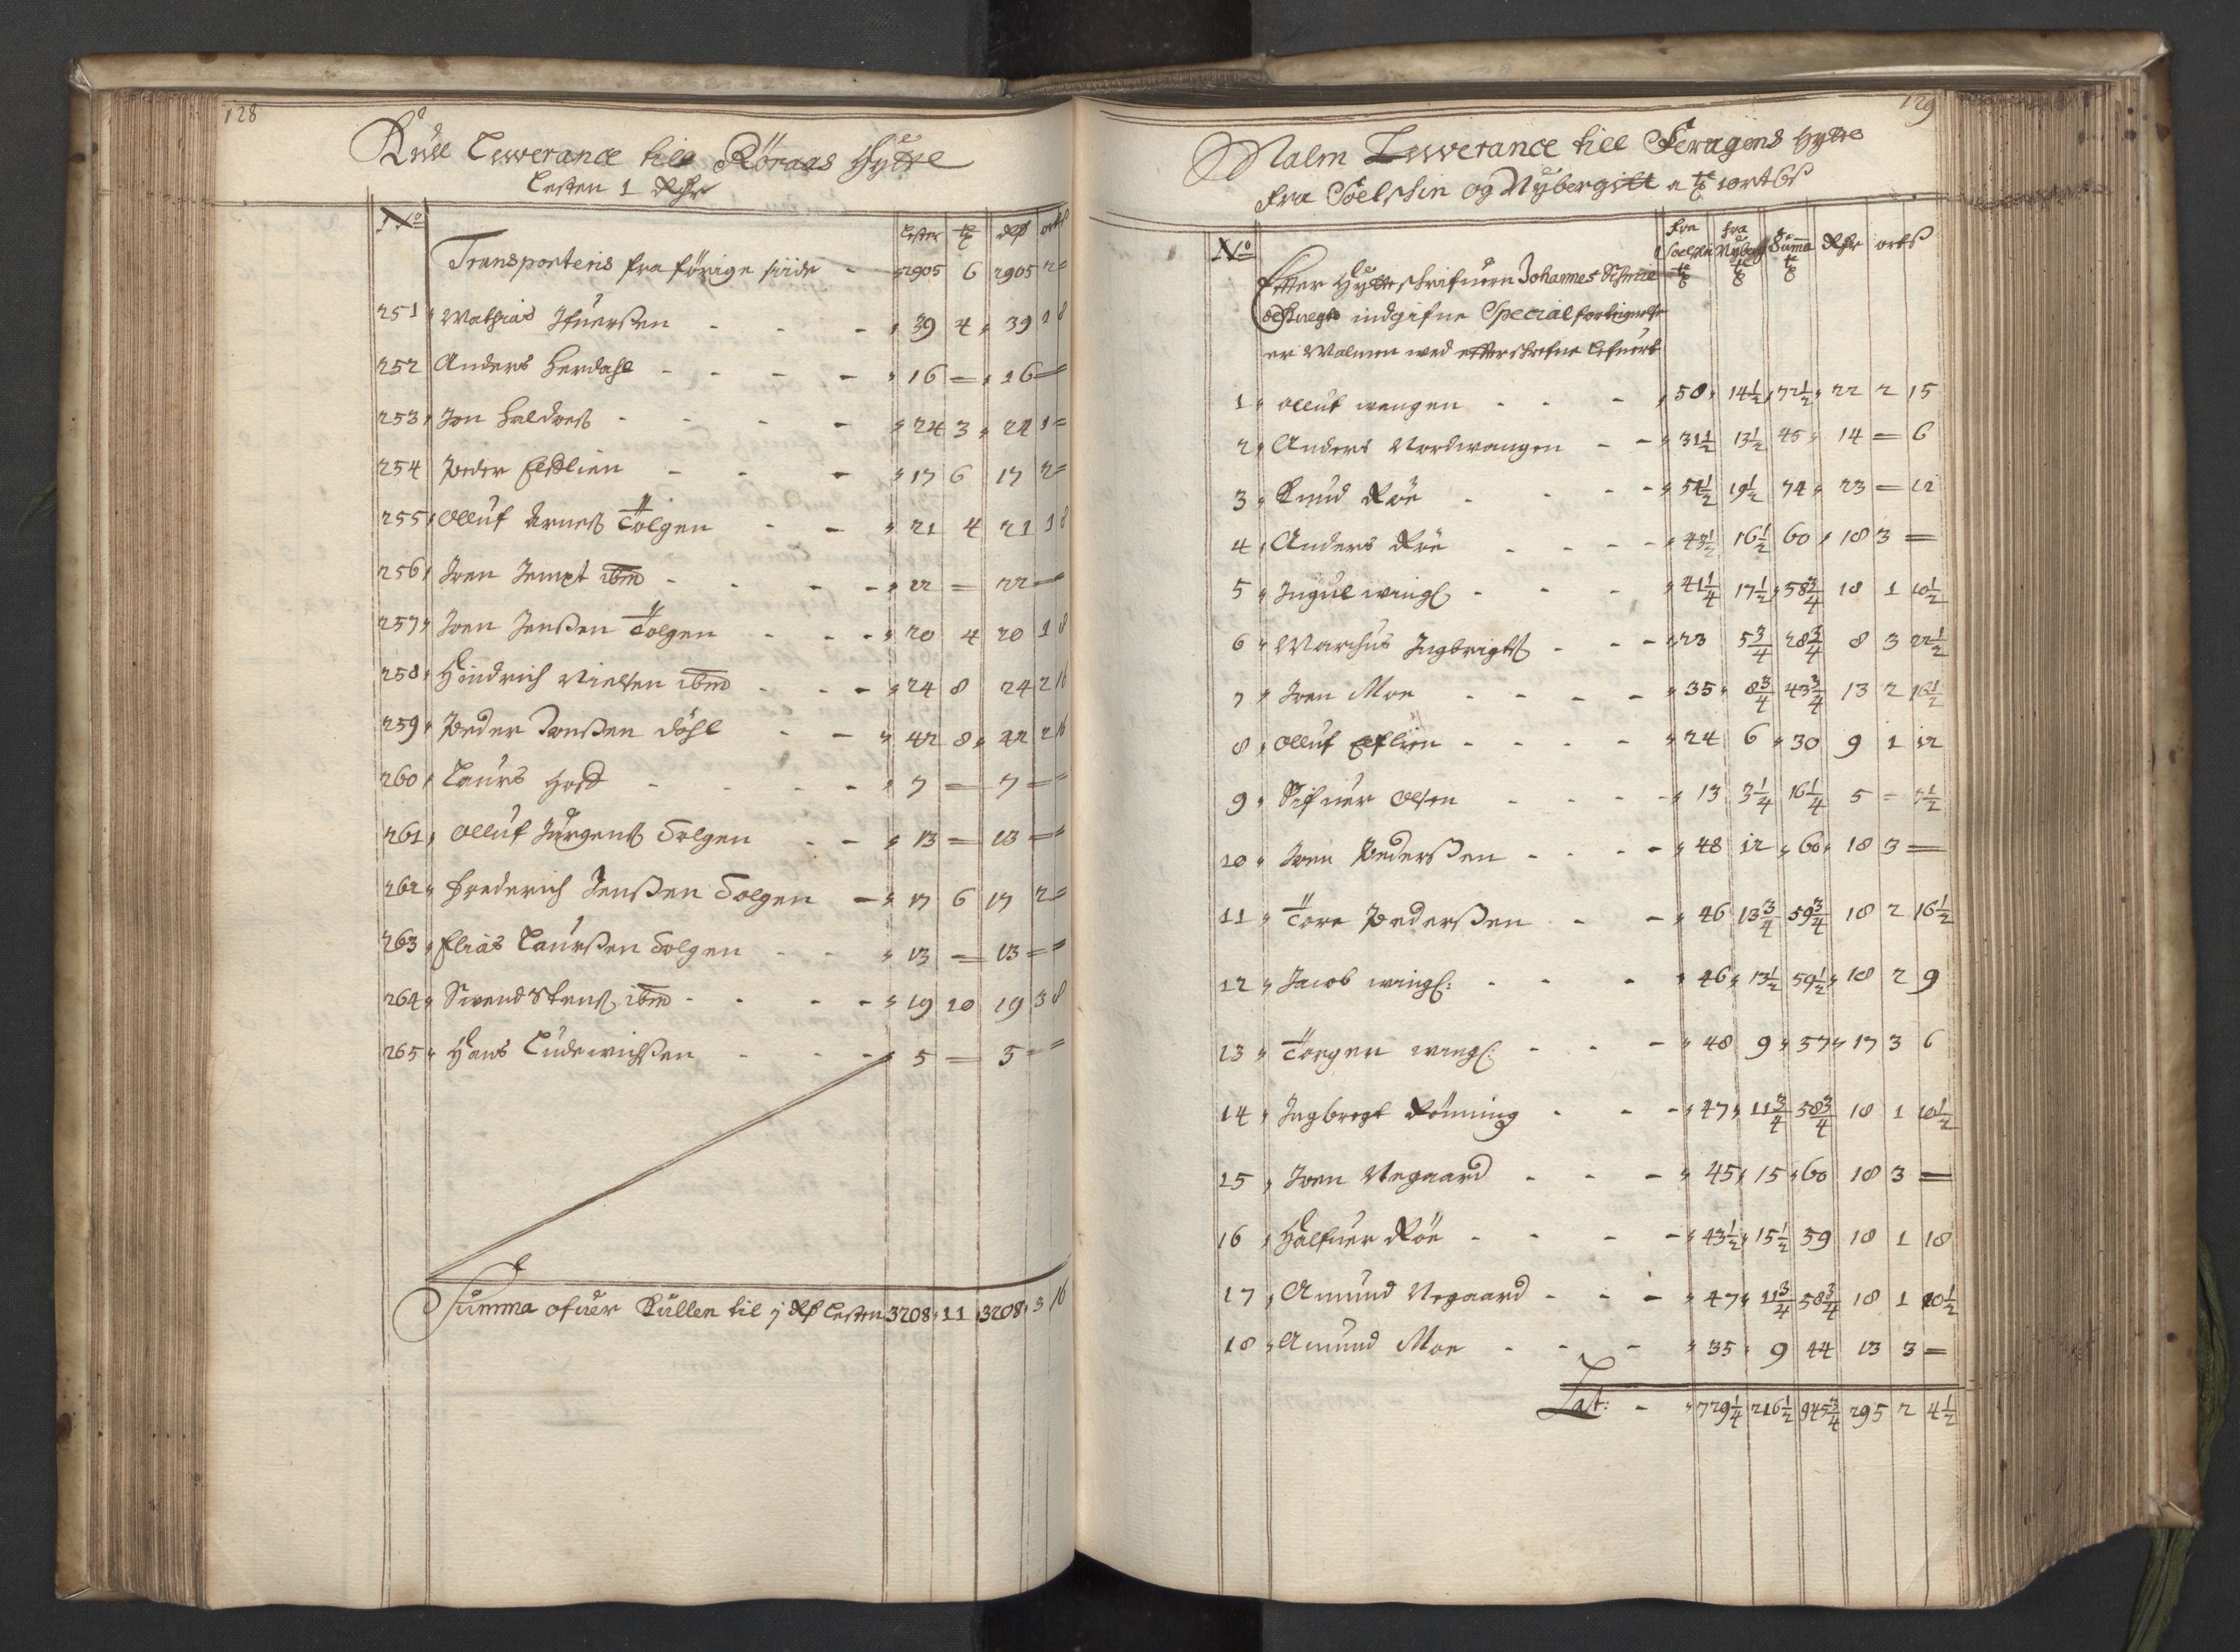 128
Kull Leverance till Röraas Hytte
Lesten 1 Rdr
No Lester tr Rdr ort s
Transporteris fra förige siide - 2905 6 2905 2 =
251 Mathias Ifuerßen - - - 39 4 39 1 8
252 Anders Herdahl - - - - 16 = 16 =
253 Jon Haldorß - - - - 24 3 24 1 =
254 Peder Eldlien - - - 17 6 17 2 =
255 Olluf Arneß Tolgen - - 21 4 21 1 8
256 Iven Jempt ibm - - - - 22 = 22 =
257 Iven Jenßen Tolgen - - - 20 4 20 1 8
258 Hindrich Nielsen ibm - - - 24 8 24 2 16
259 Peder Jonßen Döhl - - 42 8 42 2 16
260 Laurs - - - - 7 = 7 = =
261 Olluf Jürgens Tolgen - - 13 = 13 = =
262 Frederich Jenßen Tolgen - 17 6 17 2 =
263 Elias Laurßen Tolgen - - 13 = 13 = =
264 Svend Stens ibm - - - - 19 10 19 3 8
265 Hans Ludewichßen - - - 5 = 5 = =
Summa ofuer Kullen til j Rdr Lesten 3208 11 3208 3 16
129
Malm Leverance till Feragens Hytte
fra Soelskin og Nyberget a tr 1 ort 6 s
No fra Soelskin tr fra Nyberg tr Summa tr Rdr ort s
Efter Hytteskrifueren Johannes
indgifne Special
er Malmen ved efterskrefne lefuert
1 Olluf Wangen - - - 58 14½ 72½ 22 2 15
2 Anders Nordwangen - - 31½ 13½ 45 14 = 6
3 Knud Röe - - - - 54½ 19½ 74 23 = 12
4 Anders Röe - - - - 43½ 16½ 60 18 3 =
5 Ingul wing: - - - 41¼ 17½ 58¾ 18 1 10½
6 Marchus Ingbrigts - - - 23 5¾ 28¾ 8 3 22½
7 Iven Moe - - - - 35 8¾ 43¾ 13 2 16½
8 Olluf - - - - 24 6 30 9 1 12
9 Sifuer Olsen - - - - 13 3¼ 16¼ 5 = 7½
10 Iven Pederßen - - - - 48 12 60 18 3 =
11 Tore Pederßen - - 46 13¾ 59¾ 18 2 16½
12 Jacob wing: - - - 46 13½ 59½ 18 2 9
13 Torger wing: - - - 48 9 57 17 3 6
14 Ingbregt Rönning - - - 47 11¾ 58¾ 18 1 10½
15 Iven Negaard - - - 45 15 60 18 3 =
16 Halfuer Röe - - - - 43½ 15½ 59 18 1 18
17 Amund Negaard - - - 47 11¾ 58¾ 18 1 10½
18 Amund Moe - - - 35 9 44 13 3 =
Lat: - 729¼ 216½ 945¾ 295 2 4½